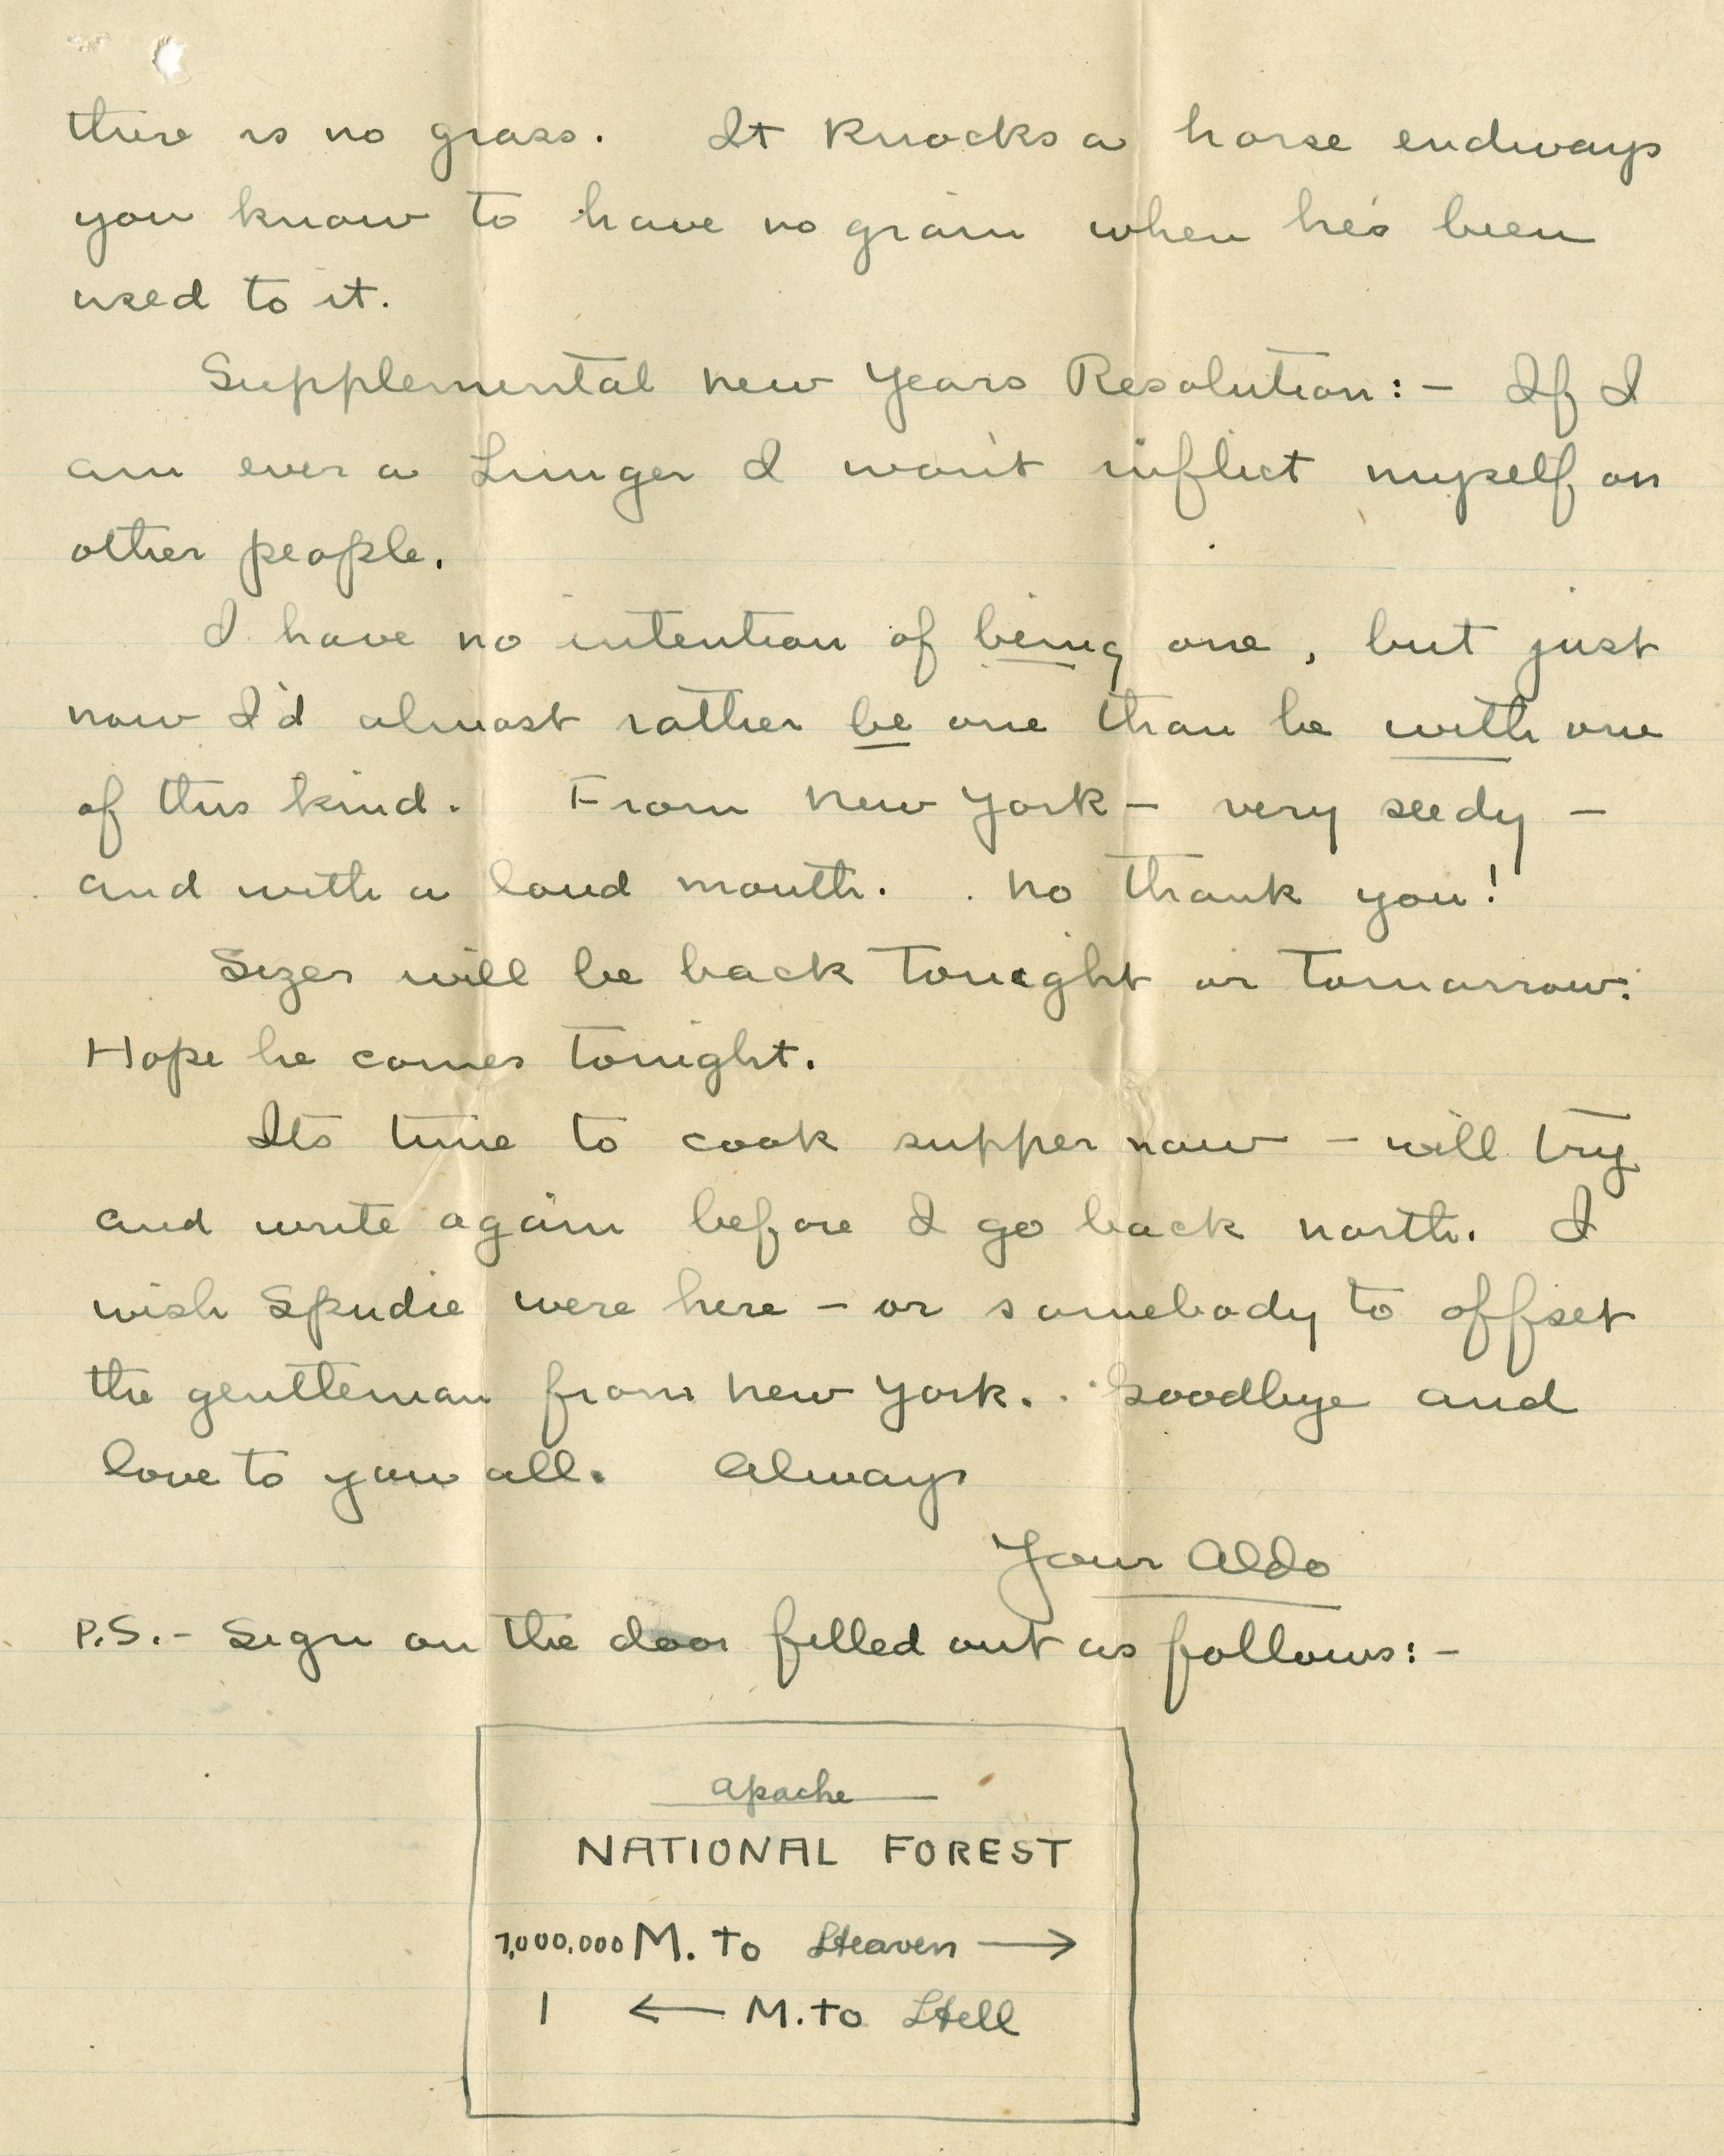 there is no grass. It knocks a horse endways
you know to have no grain when he's been
used to it.
Supplemental New Years Resolution:- If I
am ever a Lunger I won't inflict myself on
other people.
I have no intention of being one, but just
now I'd almost rather be one than be with one
of this kind. From New York - very seedy -
and with a loud mouth. No thank you!
Sizer will be back tonight or tomorrow.
Hope he comes tonight.
Its time to cook supper now - will try
and write again before I go back north. I
wish Spudie were here - or somebody to offset
the gentleman from New York. Goodbye and
love to you all. Always
Your Aldo
P.S.- Sign on the door filled out as follows:-
Apache
NATIONAL FOREST
1,000,000 M. to Heaven →
1 ← M. to Hell